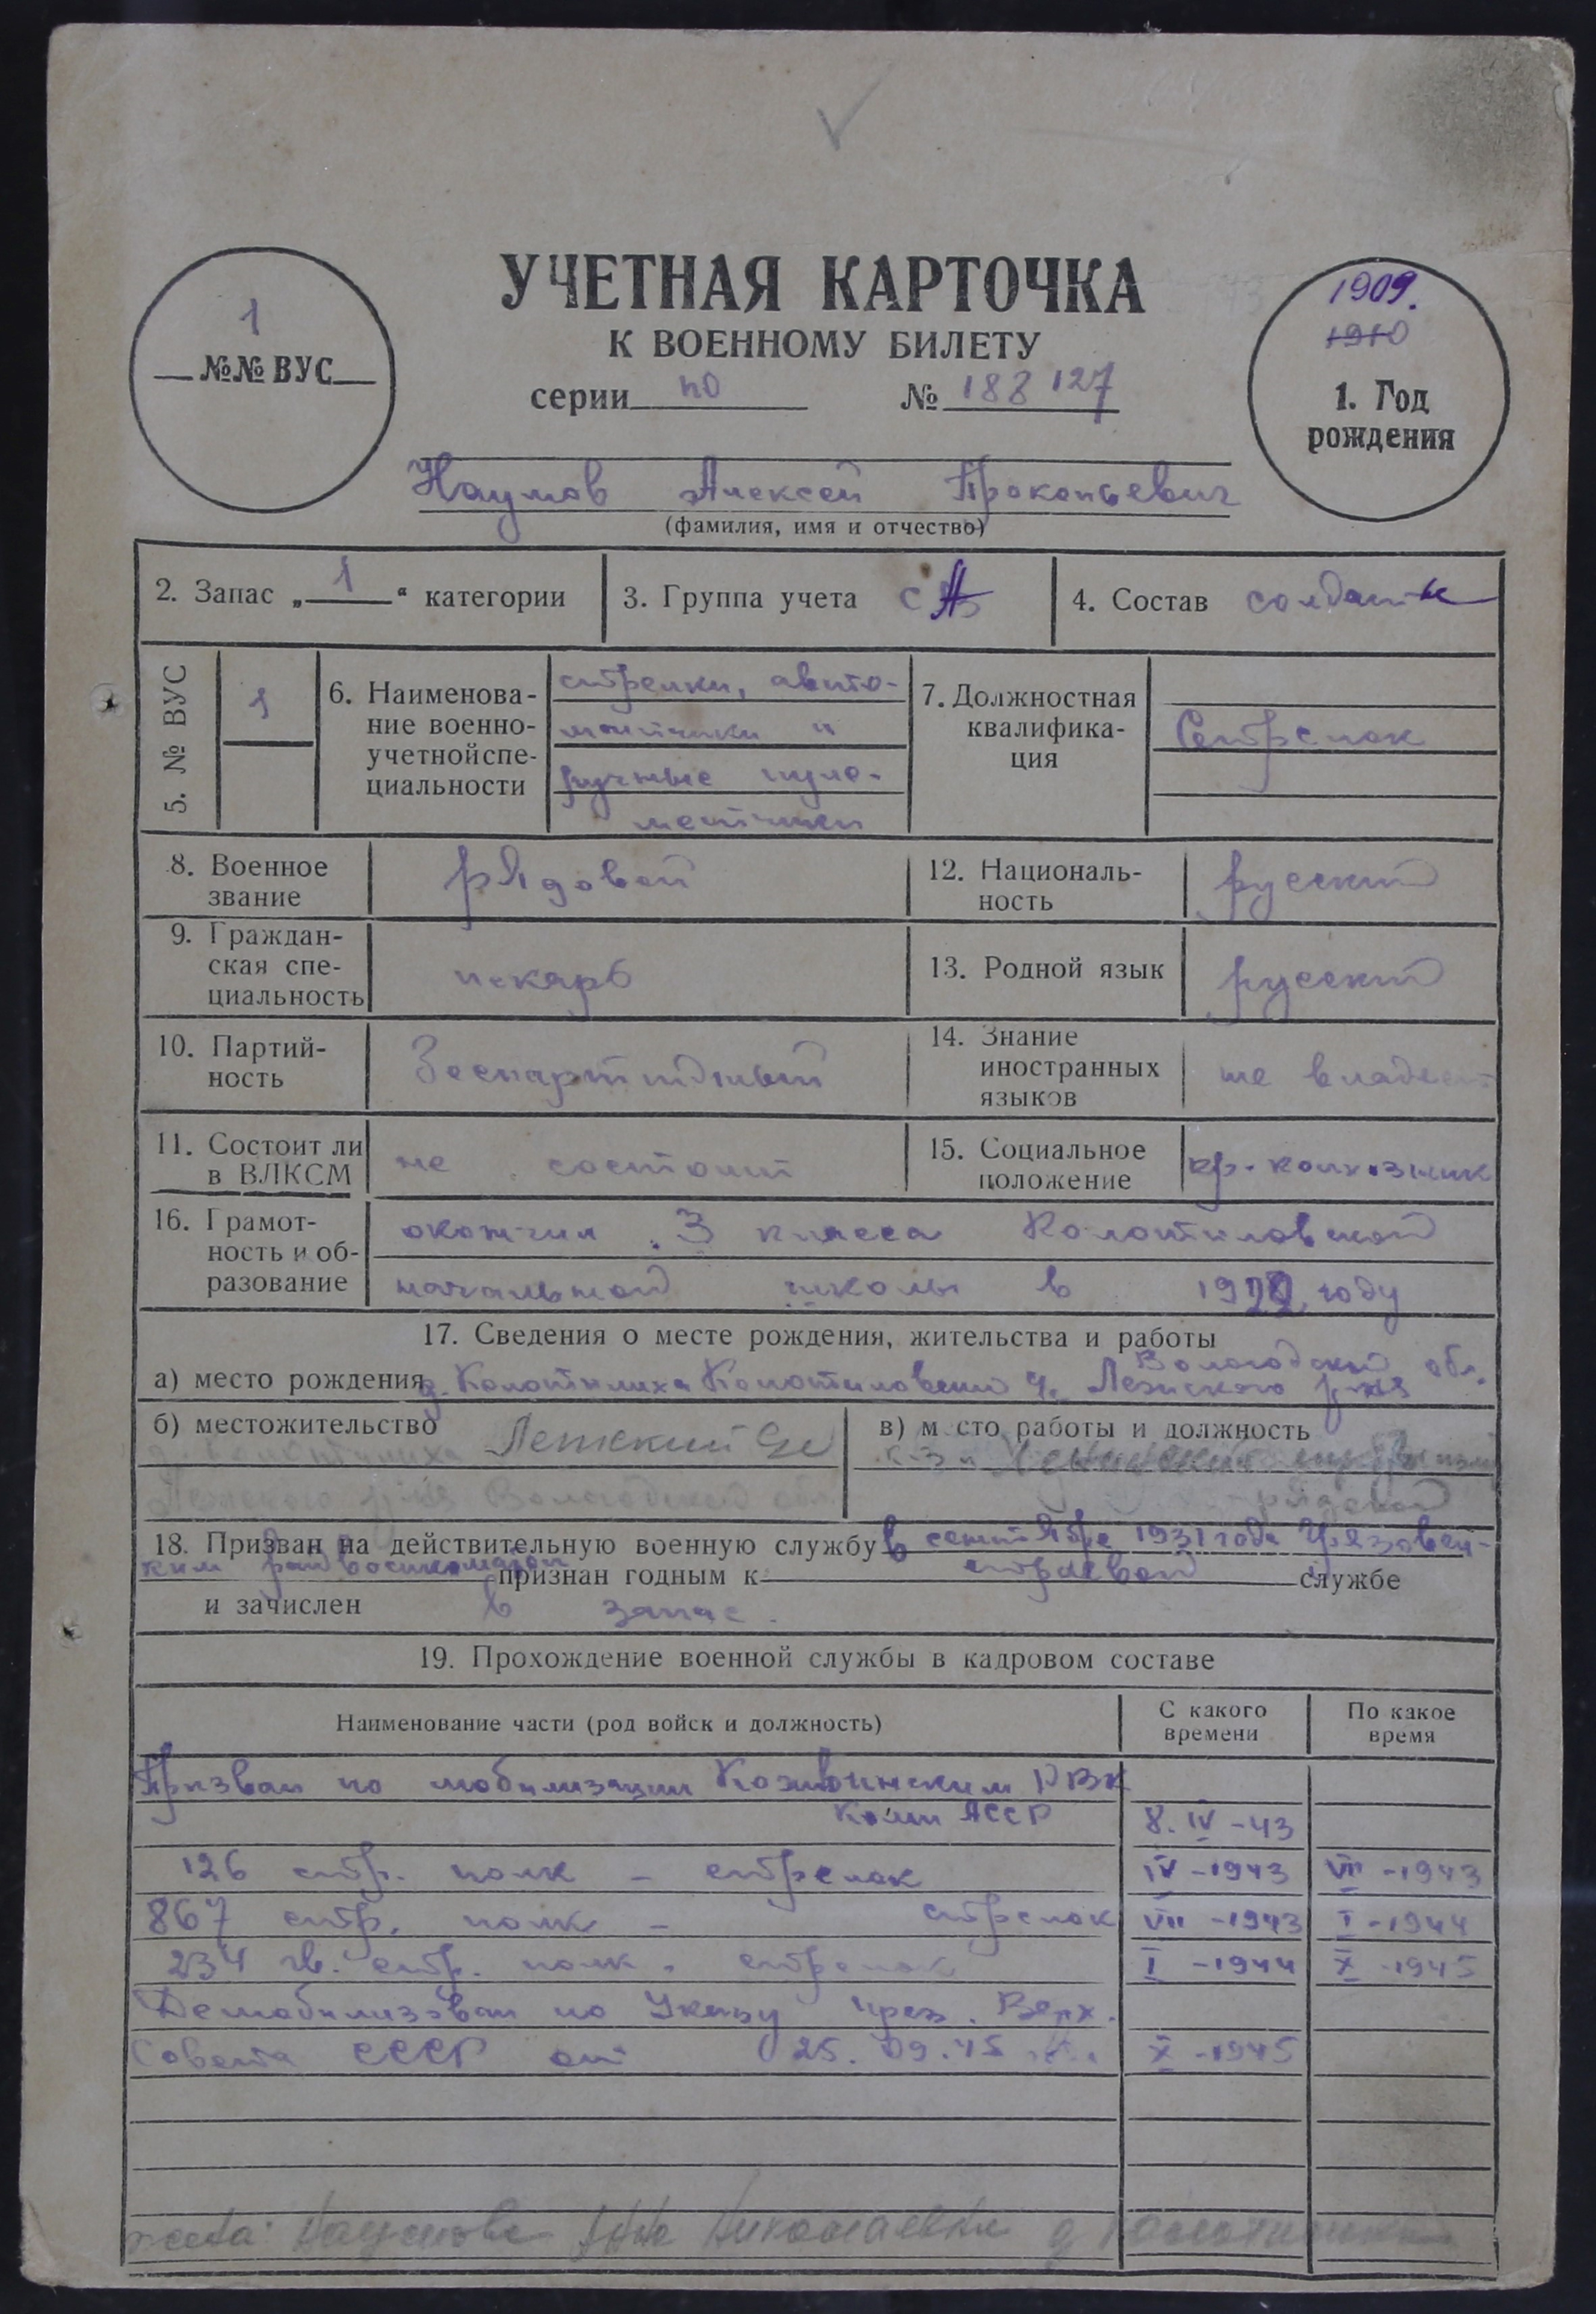 УЧЕТНАЯ КАРТОЧКА
К ВОЕННОМУ БИЛЕТУ
серии по № 188 127
1
№№ ВУС
1909.
1910
1. Год
рождения
Наумов Алексей Прокопьевич
(фамилия, имя и отчество)
2. Запас „1“ категории
3. Группа учета СА
4. Состав солдаты
5. № ВУС
1
6. Наименова-
ние военно-
учетной спе-
циальности
стрелки, авто-
матчики и
ручные пуле-
метчики
7. Должностная
квалифика-
ция
Стрелок
8. Военное
звание
рядовой
12. Националь-
ность
русский
9. Граждан-
ская спе-
циальность
пекарь
13. Родной язык
русский
10. Партий-
ность
Беспартийный
14. Знание
иностранных
языков
не владеет
11. Состоит ли
в ВЛКСМ
не состоит
15. Социальное
положение
кр. колхозник
16. Грамот-
ность и об-
разование
окончил 3 класса Колотиловской
начальной школы в 1922 году
17. Сведения о месте рождения, жительства и работы
Вологодской обл.
а) место рождения д. Колотилиха Колотиловский Лежского р-на
б) местожительство Лежский
Лежского р-на Вологодской обл.
в) место работы и должность
к-з
рядовой
18. Призван на действительную военную службу в сентябре 1931 года Грязовец-
ким райвоенкоматом признан годным к строевой службе
и зачислен в запас.
19. Прохождение военной службы в кадровом составе
Наименование части (род войск и должность)
С какого
времени
По какое
время
Призван по мобилизации Кожвинским РВК
Коми АССР 8. IV -43
126 стр. полк - стрелок IV -1943 VII -1943
867 стр. полк - стрелок VII -1943 I -1944
234 гв. стр. полк. стрелок I -1944 X -1945
Демобилизован по Указу През. Верх.
Совета СССР от 25.09.45 X -1945
жена: Наумова Анна Николаевна д Колотилиха